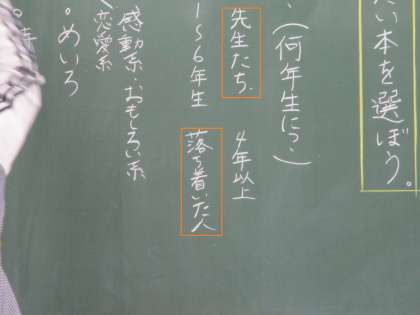 たい本を選ぼう。
(何年生に?)
先生たち.
4年以上
1〜6年生
落ち着いた人
感動系・おもしろい系
恋愛系
。めいろ